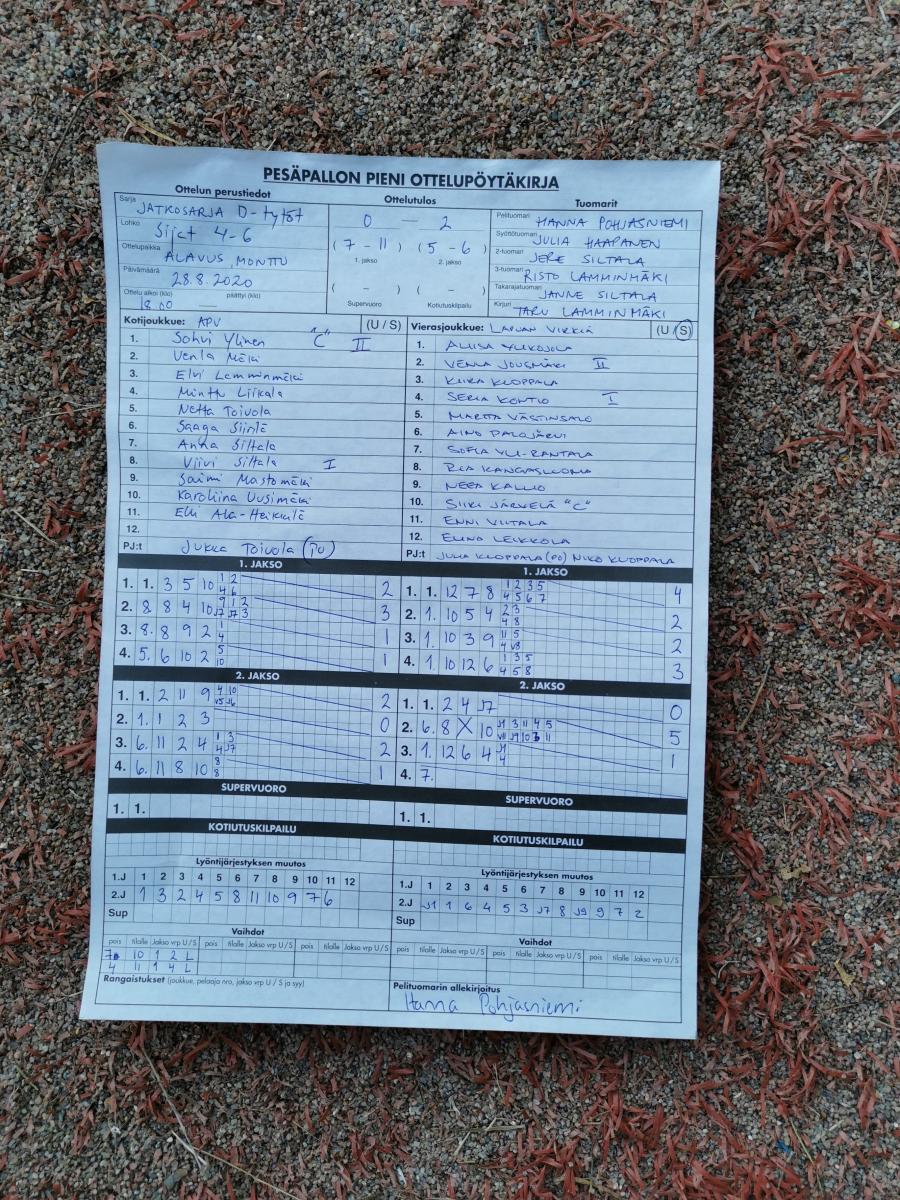 PESÄPALLON PIENI OTTELUPÖYTÄKIRJA
Ottelun perustiedot
Sarja JATKOSARJA D-tytöt
Lohko Sijat 4-6
Ottelupaikka ALAVUS, MONTTU
Päivämäärä 28.8.2020
Ottelu alkoi (klo) päättyi (klo)
18.00 —
Ottelutulos
0 — 2
(7 - 11) (5 - 6)
1. jakso 2. jakso
( - ) ( - )
Supervuoro Kotiutuskilpailu
Tuomarit
Pelituomari HANNA POHJASNIEMI
Syöttötuomari JULIA HAAPANEN
2-tuomari JERE SILTALA
3-tuomari RISTO LAMMINMÄKI
Takarajatuomari JANNE SILTALA
Kirjuri TARU LAMMINMÄKI
Kotijoukkue: APV (U / S)
1. Sohvi Ylinen "C" II
2. Venla Mäki
3. Elvi Lamminmäki
4. Minttu Liikala
5. Netta Toivola
6. Saaga
7. Anna Siltala
8. Viivi Siltala I
9. Saimi Mastomäki
10. Karoliina Uusimäki
11. Elli Ala-Heikkilä
12.
PJ:t Jukka Toivola (PU)
Vierasjoukkue: LAPUAN VIRKIÄ (U / S)
1. YLIKOJOLA
2. VENLA JOUSMÄKI II
3. KIIRA KLOPPALA
4. KONTIO I
5. MARTTA VÄSTINSALO
6. AINO PALOJÄRVI
7. SOFIA YLI-RANTALA
8. REA KANGASLUOMA
9. NEEA KALLIO
10. SIIRI JÄRVELÄ "C"
11. ENNI VIITALA
12. LEIKKOLA
PJ:t JULIA KLOPPALA (PO) NIKO KLOPPALA
1. JAKSO
1. 1. 3 5 10 1 2 4 6 2
2. 8 8 4 10 3
3. 8. 8 9 2 1 4 1
4. 5. 6 10 2 5 10 1
1. JAKSO
1. 1. 12 7 8 1 2 3 5 4 5 6 7 4
2. 1. 10 5 4 2 3 4 8 2
3. 1. 10 3 9 11 5 4 V8 2
4. 1. 10 12 6 1 3 5 4 5 8 3
2. JAKSO
1. 1. 2 11 9 4 10 V5 J6 2
2. 1. 1 2 3 0
3. 6. 11 2 4 1 3 4 J7 2
4. 6. 11 8 10 8 8 1
2. JAKSO
1. 1. 2 4 J7 0
2. 6. 8 X 10 J1 3 11 4 5 5
3. 1. 12 6 4 J1 4 1
4. 7.
SUPERVUORO
1. 1.
SUPERVUORO
1. 1.
KOTIUTUSKILPAILU
KOTIUTUSKILPAILU
Lyöntijärjestyksen muutos
1.J 1 2 3 4 5 6 7 8 9 10 11 12
2.J 1 3 2 4 5 8 11 10 9 7 6
Sup
Lyöntijärjestyksen muutos
1.J 1 2 3 4 5 6 7 8 9 10 11 12
2.J J1 1 6 4 5 3 J7 8 J9 9 7 2
Sup
Vaihdot
pois tilalle Jakso vrp U / S pois tilalle Jakso vrp U / S pois tilalle Jakso vrp U / S
10 1 2 L
4 11 1 4 L
Vaihdot
pois tilalle Jakso vrp U / S pois tilalle Jakso vrp U / S pois tilalle Jakso vrp U / S
Rangaistukset (joukkue, pelaaja nro, jakso vrp U / S ja syy)
Pelituomarin allekirjoitus
Hanna Pohjasniemi